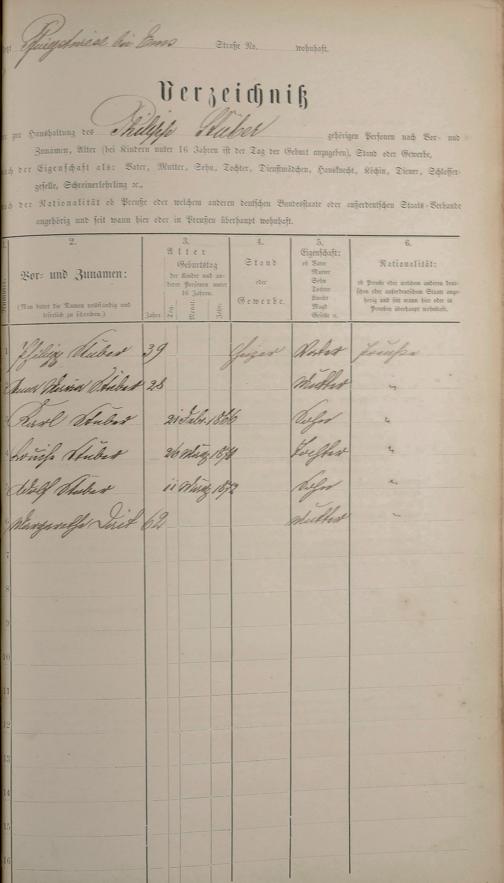 bei Ems Straße No. wohnhaft.
Verzeichniß
zur Haushaltung des Philipp Stuber gehörigen Personen nach Vor- und
Zunamen, Alter (bei Kindern unter 16 Jahren ist der Tag der Geburt anzugeben), Stand oder Gewerbe,
nach der Eigenschaft als: Vater, Mutter, Sohn, Tochter, Dienstmädchen, Hausknecht, Köchin, Diener, Schlosser-
geselle, Schreinerlehrling ꝛc.,
nach der Nationalität ob Preuße oder welchem anderen deutschen Bundesstaate oder außerdeutschen Staats-Verbande
angehörig und seit wann hier oder in Preußen überhaupt wohnhaft.
1. 2. 3. 4. 5. 6.
Vor- und Zunamen:
(Man bittet die Namen vollständig und leserlich zu schreiben.)
Alter
Geburtstag
der Kinder und an-
deren Personen unter
16 Jahren.
Jahre Tag. Monat. Jahr.
Stand
oder
Gewerbe.
Eigenschaft:
ob Vater
Mutter
Sohn
Tochter
Knecht
Magd
Geselle ꝛc.
Nationalität:
ob Preuße oder welchem anderen deut-
schen oder außerdeutschen Staate ange-
hörig und seit wann hier oder in
Preußen überhaupt wohnhaft.
1 Philipp Stuber 39 Heizer Vater Preuße
Stuber 28 Mutter "
Karl Stuber 21 Febr. 1866 Sohn "
Louise Stuber 26 März 1870 Tochter "
Adolf Stuber 11 März 1872 Sohn "
Margarethe 62 Mutter "
7
8
9
10
11
12
13
14
15
16